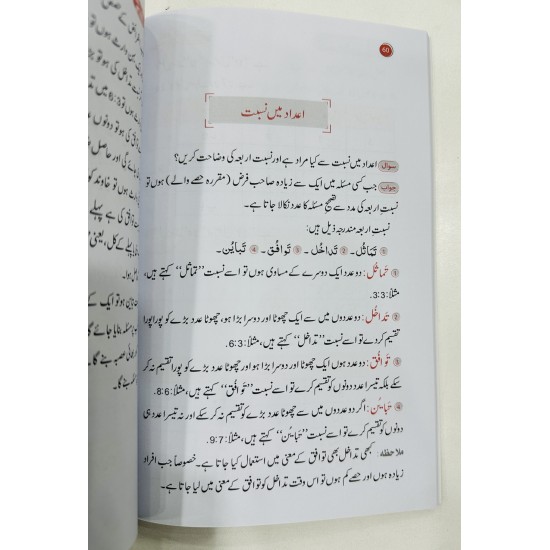 60
اعداد میں نسبت
سوال اعداد میں نسبت سے کیا مراد ہے اور نسبت اربعہ کی وضاحت کریں؟
جواب جب کسی مسئلہ میں ایک سے زیادہ صاحب فرض (مقررہ حصے والے) ہوں تو
نسبتِ اربعہ کی مدد سے تصحیح مسئلہ کا عدد نکالا جاتا ہے۔
نسبت اربعہ مندرجہ ذیل ہیں:
① تَمَاثُل۔ ② تَدَاخُل۔ ③ تَوَافُق۔ ④ تَبَایُن۔
① تَمَاثُل: دو عدد ایک دوسرے کے مساوی ہوں تو اسے نسبت ’’تماثل‘‘ کہتے ہیں،
مثلاً: 3:3۔
② تَدَاخُل: دو عددوں میں سے ایک چھوٹا اور دوسرا بڑا ہو، چھوٹا عدد بڑے کو پورا پورا
تقسیم کر دے تو اسے نسبت ’’تداخل‘‘ کہتے ہیں، مثلاً: 6:3۔
③ تَوَافُق: دو عدد ہوں ایک چھوٹا اور دوسرا بڑا، چھوٹا عدد بڑے کو پورا تقسیم نہ کر
سکے بلکہ تیسرا عدد دونوں کو تقسیم کرے تو اسے نسبت ’’تَوَافُق‘‘ کہتے ہیں، مثلاً: 8:6۔
④ تَبَایُن: اگر دو عددوں میں سے چھوٹا عدد بڑے کو تقسیم نہ کر سکے اور نہ تیسرا عدد ہی
دونوں کو تقسیم کرے تو اسے نسبت ’’تَبَایُن‘‘ کہتے ہیں، مثلاً: 9:7۔
ملاحظہ کبھی تداخل بھی توافق کے معنی میں استعمال کیا جاتا ہے۔ خصوصاً جب افراد
زیادہ ہوں اور حصے کم ہوں تو اس وقت تداخل کو توافق کے معنی میں لیا جاتا ہے۔